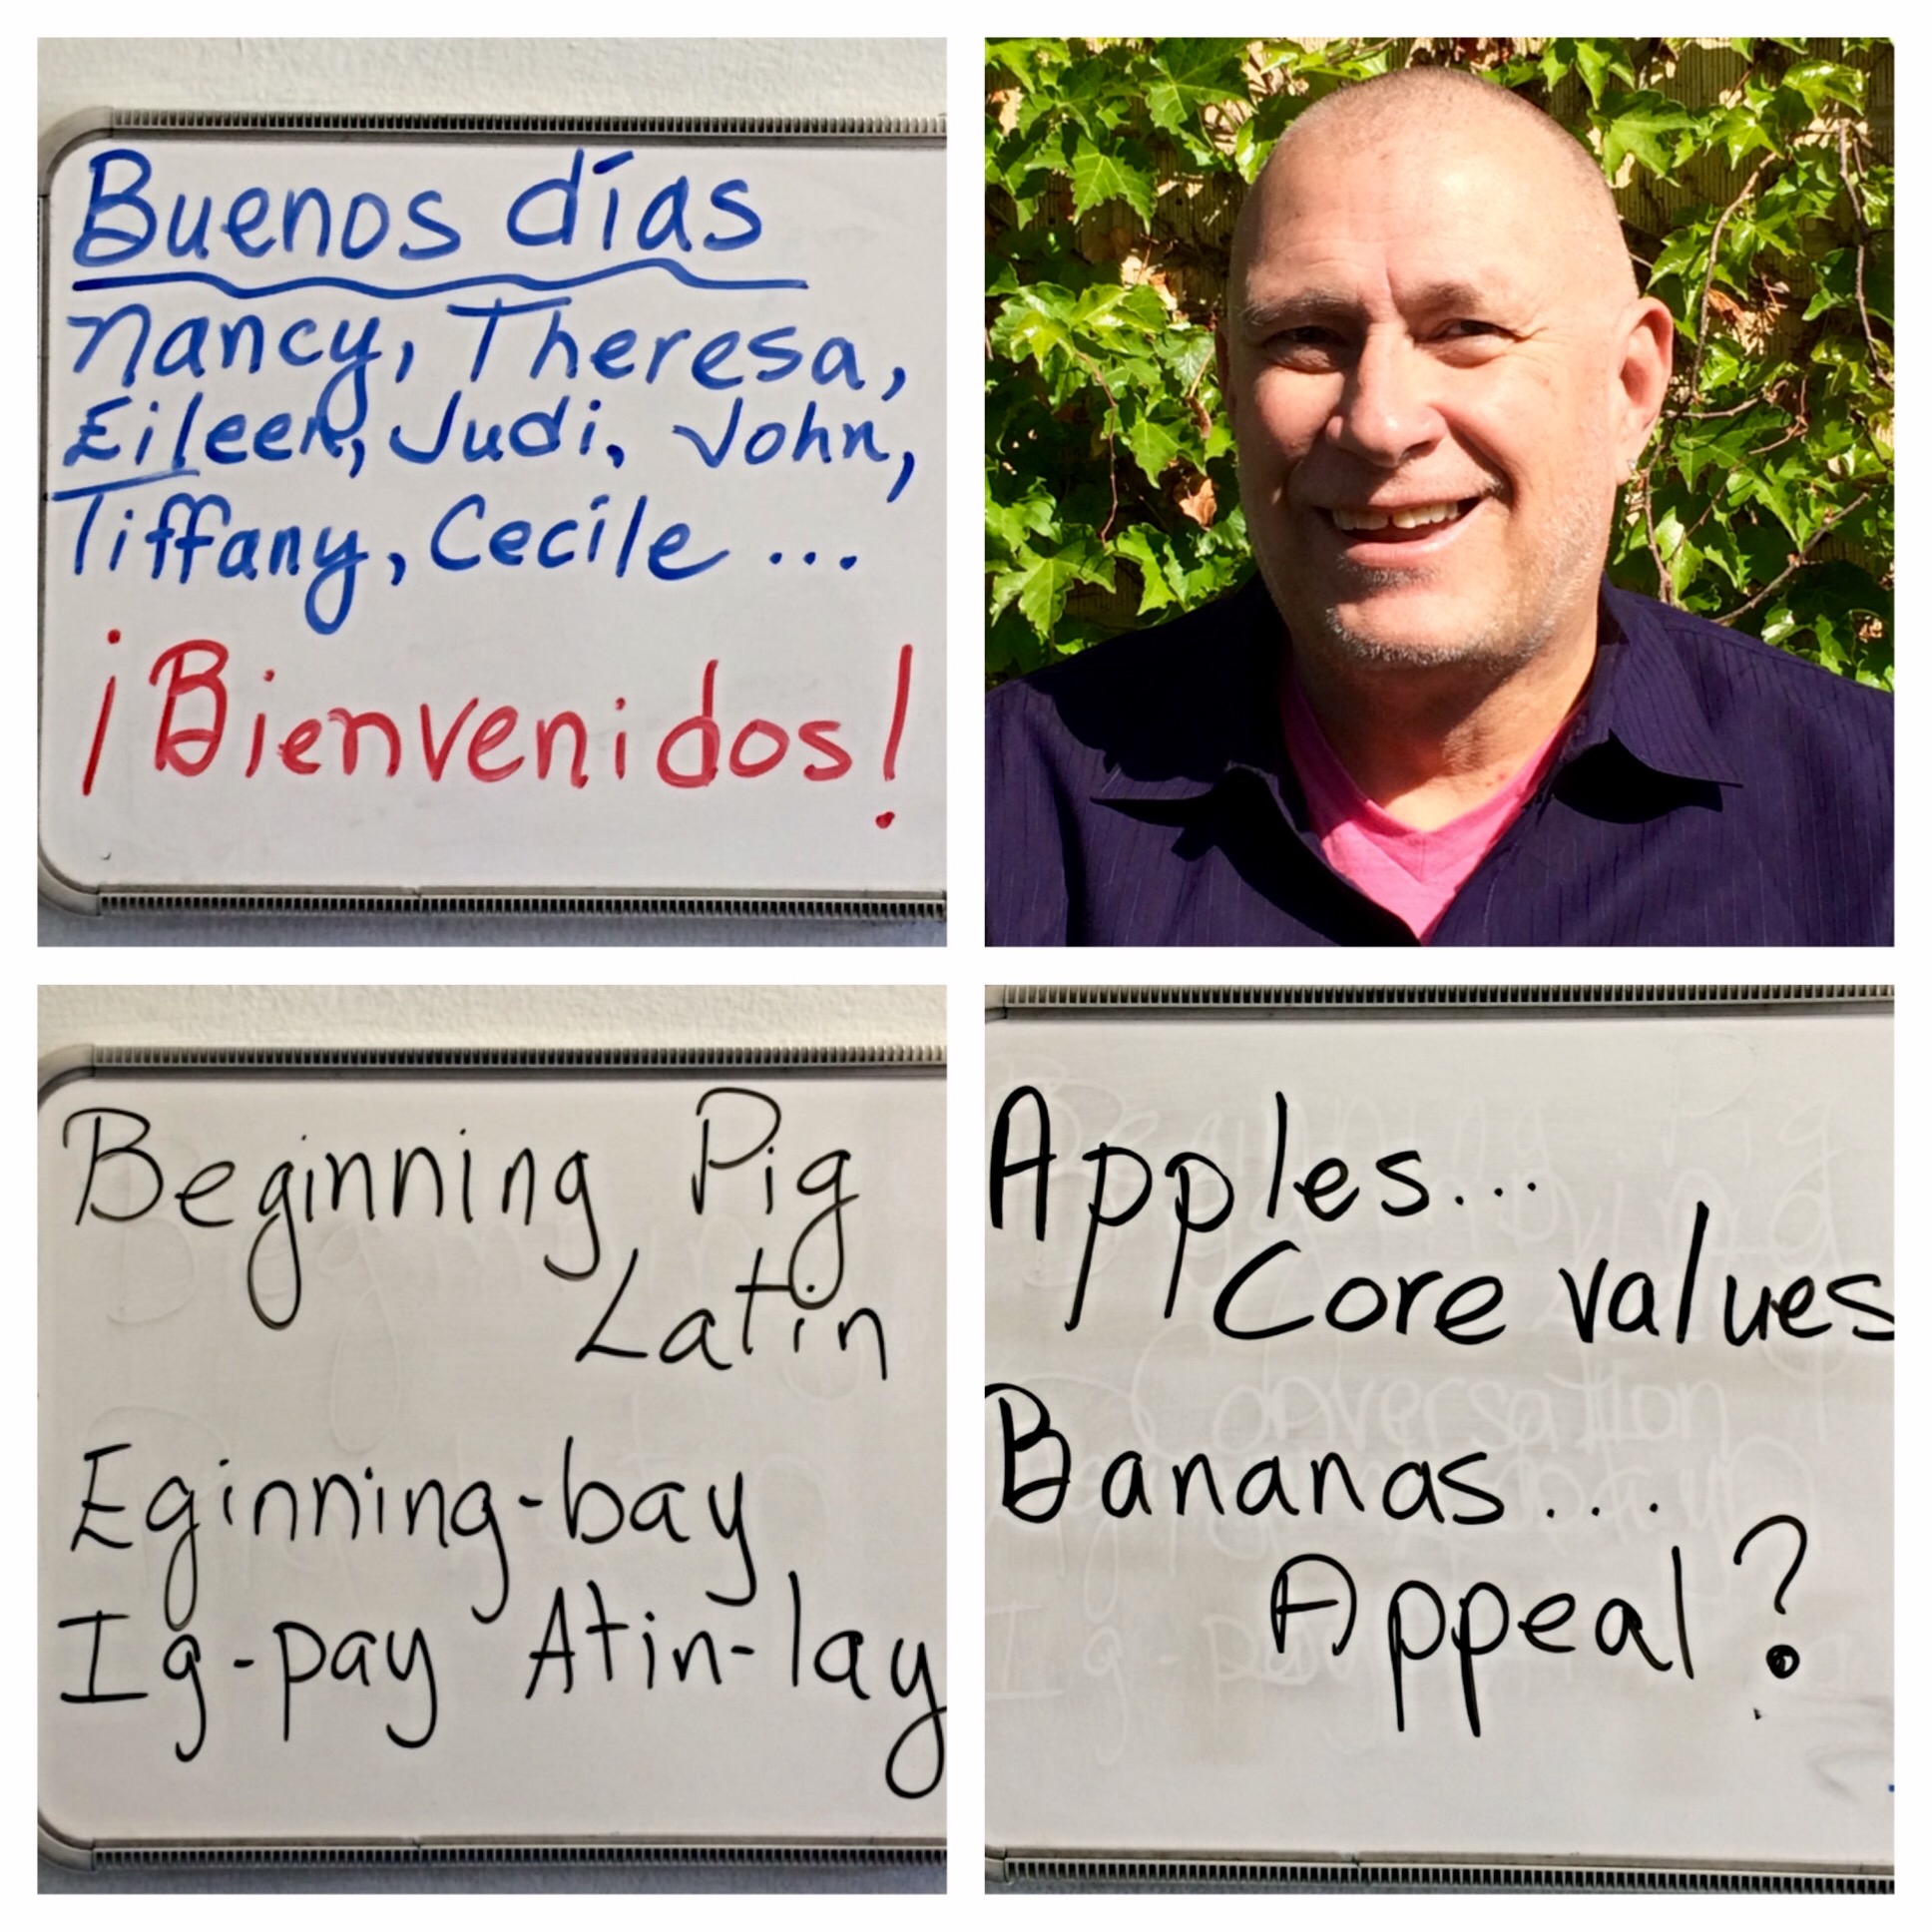 Buenos días
Nancy, Theresa,
Eileen, Judi, John,
Tiffany, Cecile ...
¡Bienvenidos!
Beginning Pig
Latin
Eginning-bay
Ig-pay Atin-lay
Apples...
Core values
Bananas...
Appeal?